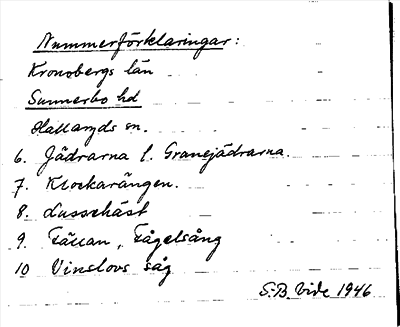 Nummerförklaringar:
Kronobergs län
Sunnerbo hd
Hallaryds sn.
6. Jädrarna l. Granejädrarna.
7. Klockarängen.
8. Lussehäst
9. Fållan, Fågelsång
10 Vinslovs såg
S.B. Vide 1946